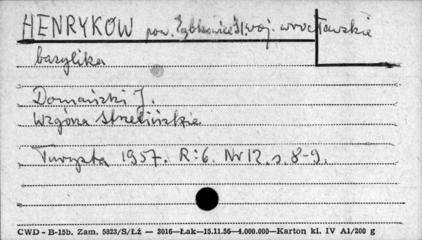 HENRYKÓW pow. Ząbkowice Śl. woj. wrocławskie
bazylika
Domański J.
Wzgórza Strzelińskie
Turysta 1957. R:6. Nr 12. s. 8-9.
CWD - B-15b. Zam. 5323/S/Łź — 3016—Łak—15.11.56—4.000.000—Karton kl. IV A1/200 g